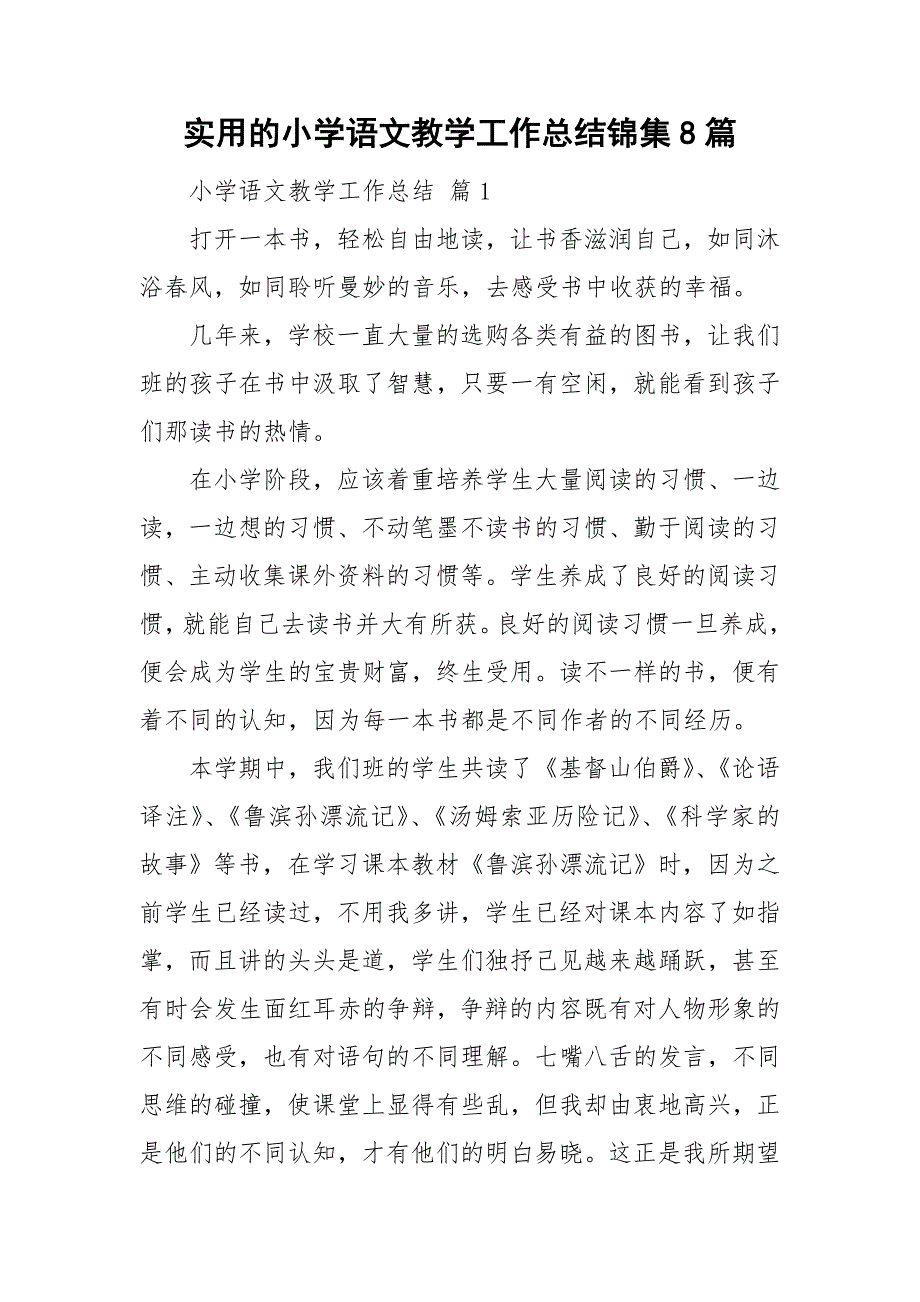 实用的小学语文教学工作总结锦集 8 篇
小学语文教学工作总结 篇 1
打开一本书，轻松自由地读，让书香滋润自己，如同沐
浴春风，如同聆听曼妙的音乐，去感受书中收获的幸福。
几年来，学校一直大量的选购各类有益的图书，让我们
班的孩子在书中汲取了智慧，只要一有空闲，就能看到孩子
们那读书的热情。
在小学阶段，应该着重培养学生大量阅读的习惯、一边
读，一边想的习惯、不动笔墨不读书的习惯、勤于阅读的习
惯、主动收集课外资料的习惯等。学生养成了良好的阅读习
惯，就能自己去读书并大有所获。良好的阅读习惯一旦养成，
便会成为学生的宝贵财富，终生受用。读不一样的书，便有
着不同的认知，因为每一本书都是不同作者的不同经历。
本学期中，我们班的学生共读了《基督山伯爵》、《论语
译注》、《鲁滨孙漂流记》、《汤姆索亚历险记》、《科学家的
故事》等书，在学习课本教材《鲁滨孙漂流记》时，因为之
前学生已经读过，不用我多讲，学生已经对课本内容了如指
掌，而且讲的头头是道，学生们独抒己见越来越踊跃，甚至
有时会发生面红耳赤的争辩，争辩的内容既有对人物形象的
不同感受，也有对语句的不同理解。七嘴八舌的发言，不同
思维的碰撞，使课堂上显得有些乱，但我却由衷地高兴，正
是他们的不同认知，才有他们的明白易晓。这正是我所期望